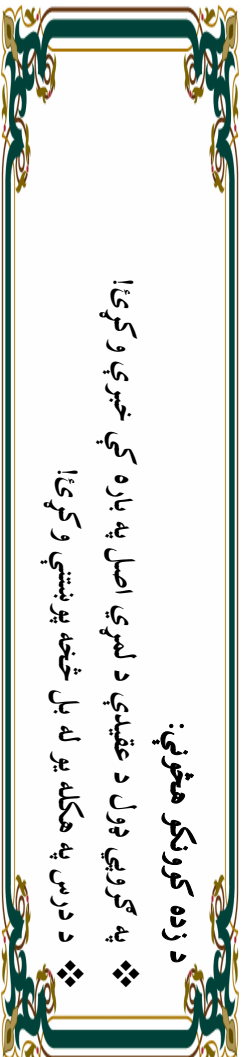 د زده کوونکو هڅونې:
❖ په ګروپي ډول د عقیدې د لمړي اصل په باره کې خبرې وکړئ!
❖ د درس په هکله یو له بل څخه پوښتنې وکړئ!